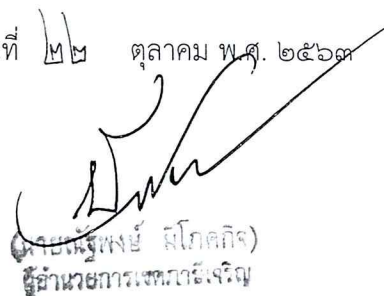 ที่ ๒๒ ตุลาคม พ.ศ. ๒๕๖๓
(นายณัฐพงษ์ มิโภคกิจ)
ผู้อำนวยการเขตภาษีเจริญ